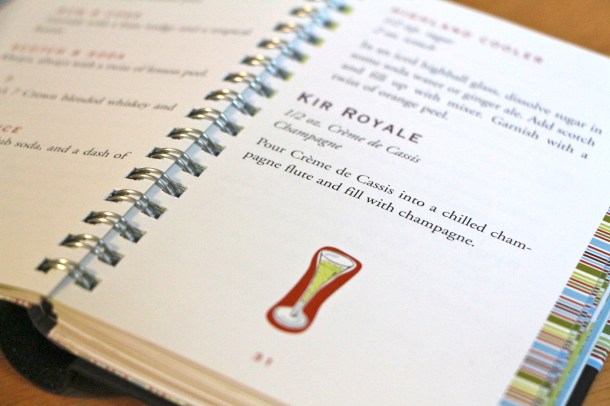 SCOTCH & SODA
always with a twist of lemon peel.
7 Crown blended whiskey and
soda, and a dash of
HIGHLAND COOLER
1/2 tsp. sugar
2 oz. scotch
In an iced highball glass, dissolve sugar in
some soda water or ginger ale. Add scotch
and fill up with mixer. Garnish with a
twist of orange peel.
KIR ROYALE
1/2 oz. Crème de Cassis
Champagne
Pour Crème de Cassis into a chilled cham-
pagne flute and fill with champagne.
31